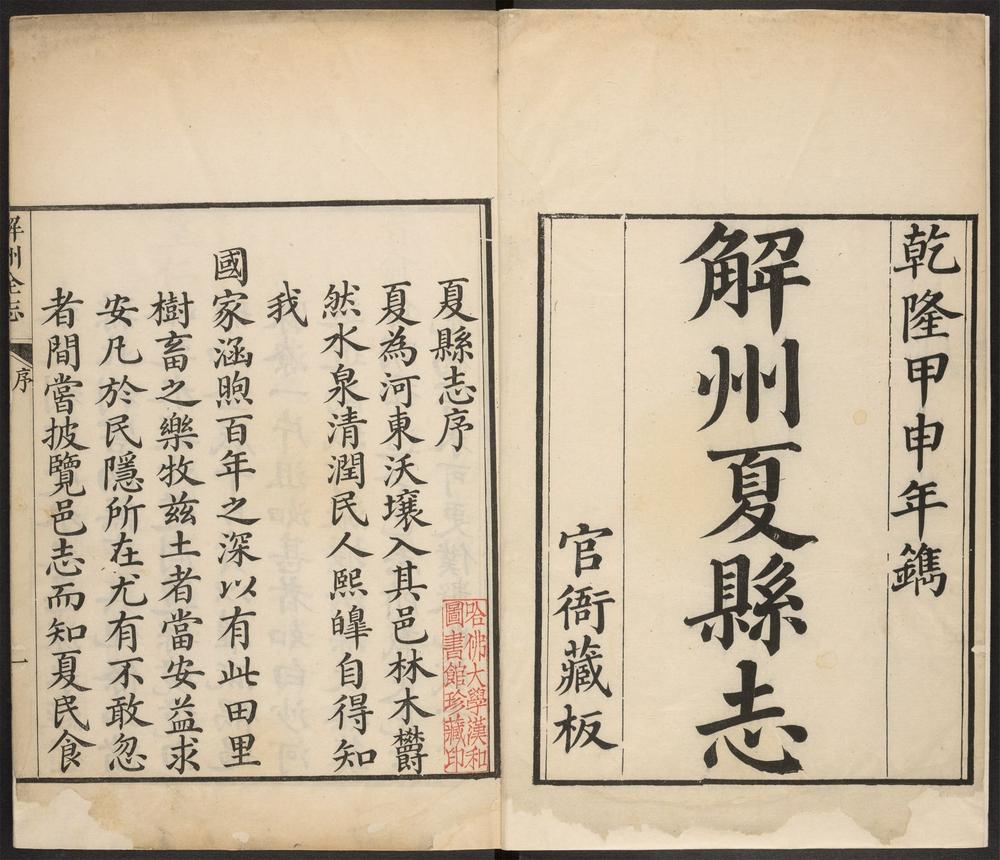 乾隆甲申年鐫
解州夏縣志
官衙藏板
夏縣志序
夏為河東沃壤入其邑林木欝
然水泉清潤民人熙皥自得知
我
國家涵煦百年之深以有此田里
樹畜之樂牧茲土者當安益求
安凡於民隱所在尤有不敢忽
者間嘗披覽邑志而知夏民食
哈佛大學漢和
圖書館珍藏印
解州全志
序
一